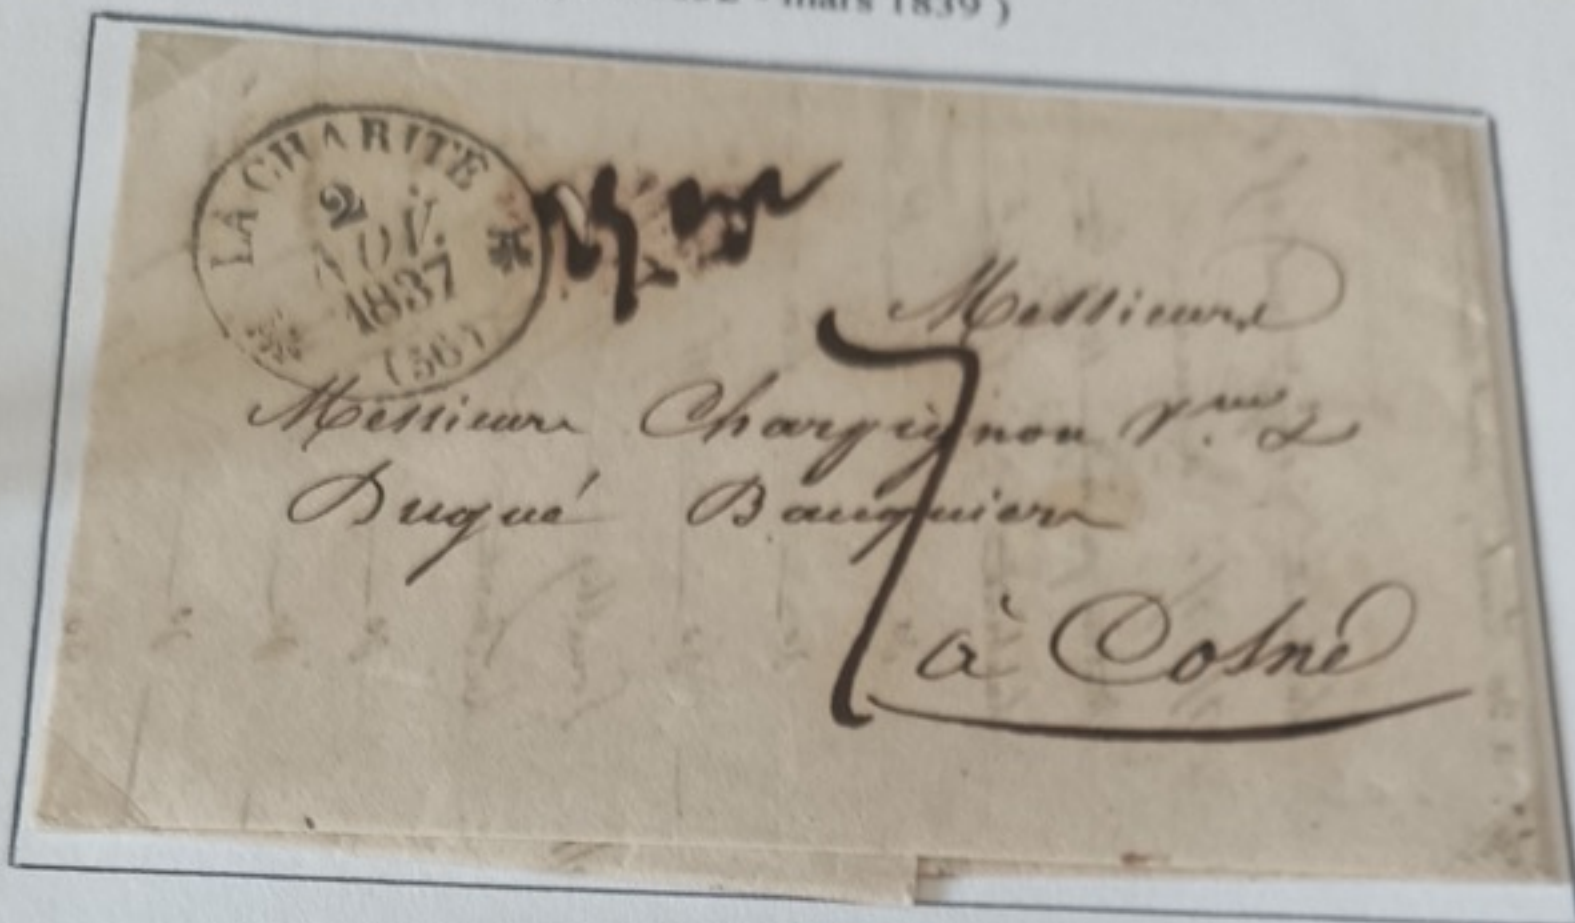 mars 1839 )
LA CHARITÉ
2
NOV.
1837
(56)
Messieurs
7
Messieurs Charpignon
Dugué Banquiers
à Cosne